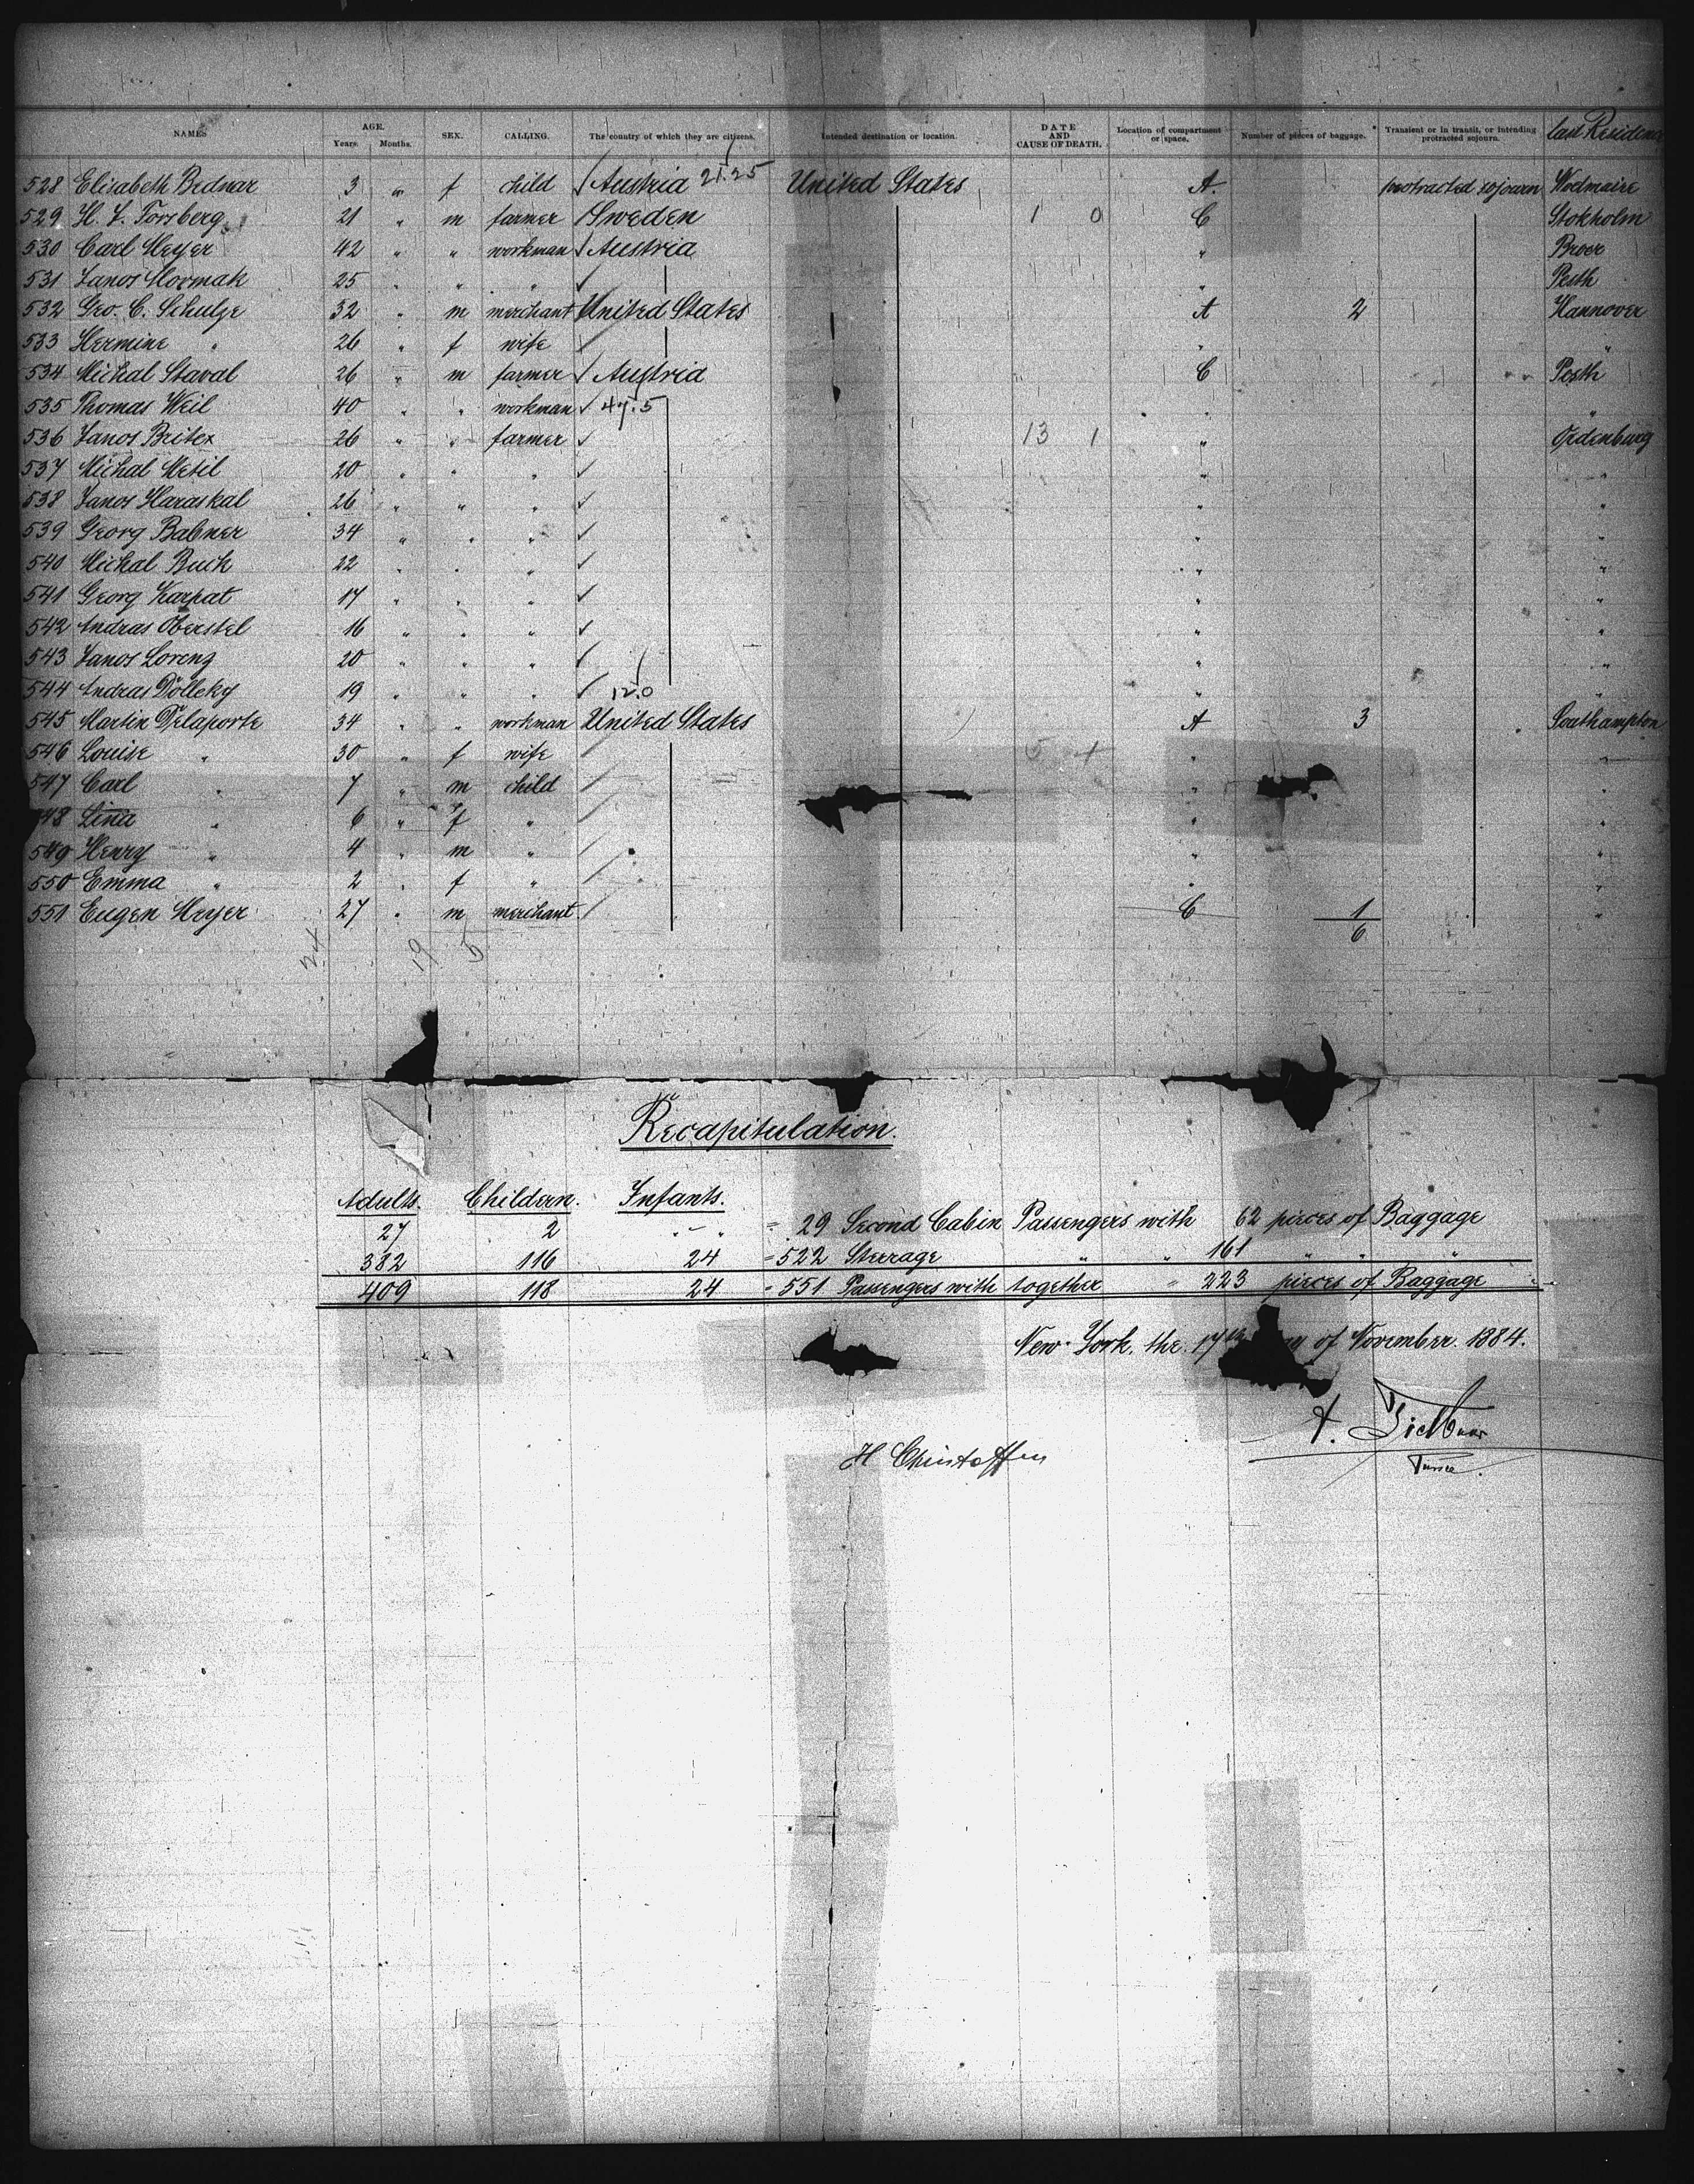 NAMES AGE. Years. Months. SEX. CALLING. The country of which they are citizens. Intended destination or location. DATE AND CAUSE OF DEATH. Location of compartment or space. Number of pieces of baggage. Transient or in transit, or intending protracted sojourn. last Residence
528 Elisabeth Bednar 3 " f child / Austria 21.25 United States A. protracted sojourn
529 H. L. Forsberg 21 " m farmer / Sweden 1 0 C Stokholm
530 Carl Meyer 42 " " workman / Austria "
531 Janos Hormak 25 " " " / " Pesth
532 Geo. C. Schulze 32 " m merchant United States A 2 Hannover
533 Hermine " 26 " f wife / " "
534 Michal Staval 26 " m farmer / Austria C Pesth
535 Thomas Weil 40 " " workman / 47.5 " "
536 Janos Britex 26 " " farmer / 13 1 " Oedenburg
537 Michal Mesil 20 " " " / " "
538 Janos Haraskal 26 " " " / " "
539 Georg Babner 34 " " " / " "
540 Michal Buch 22 " " " / " "
541 Georg Karpat 17 " " " / " "
542 Andras Oberstel 16 " " " / " "
543 Janos Loreng 20 " " " / " "
544 Andras Dölleky 19 " " " / 12.0 " "
545 Martin Delaporte 34 " " workman United States A 3 Southampton
546 Louise " 30 " f wife / 5 4 " "
547 Carl " 7 " m child / " "
548 Lina " 6 " f " / " "
549 Henry " 4 " m " / " "
550 Emma " 2 " f " / " "
551 Eugen Meyer 27 " m merchant / C 1 "
6
24 19 5
Recapitulation.
Adults. Childern. Infants.
27 2 - " = 29 Second Cabin Passengers with 62 pieces of Baggage
382 116 24 = 522 Steerage " " 161 " " "
409 118 24 = 551 Passengers with together " 223 pieces of Baggage
New-York, the 17th of November. 1884.
H Christoffen